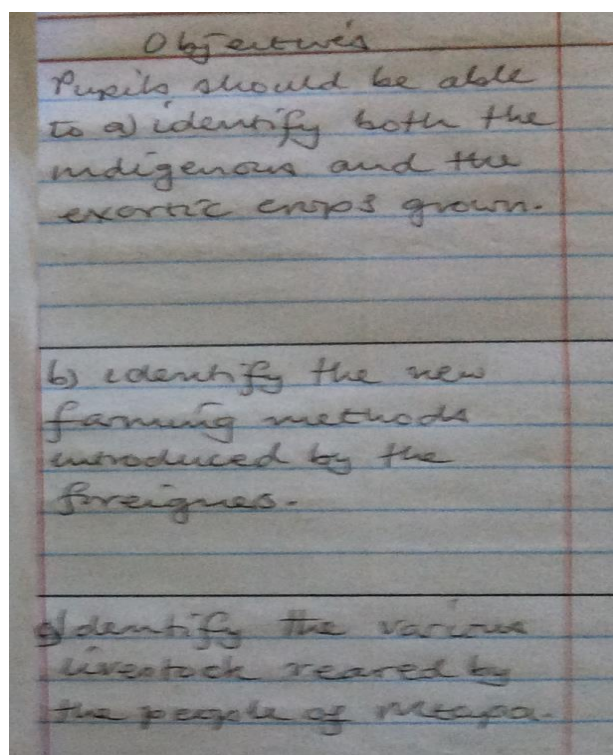 Objectives
Pupils should be able
to a) identify both the
indigenous and the
exortic crops grown.
b) identify the new
farming methods
introduced by the
foreignes.
c) Identify the various
livestock reared by
the people of Mtapa.